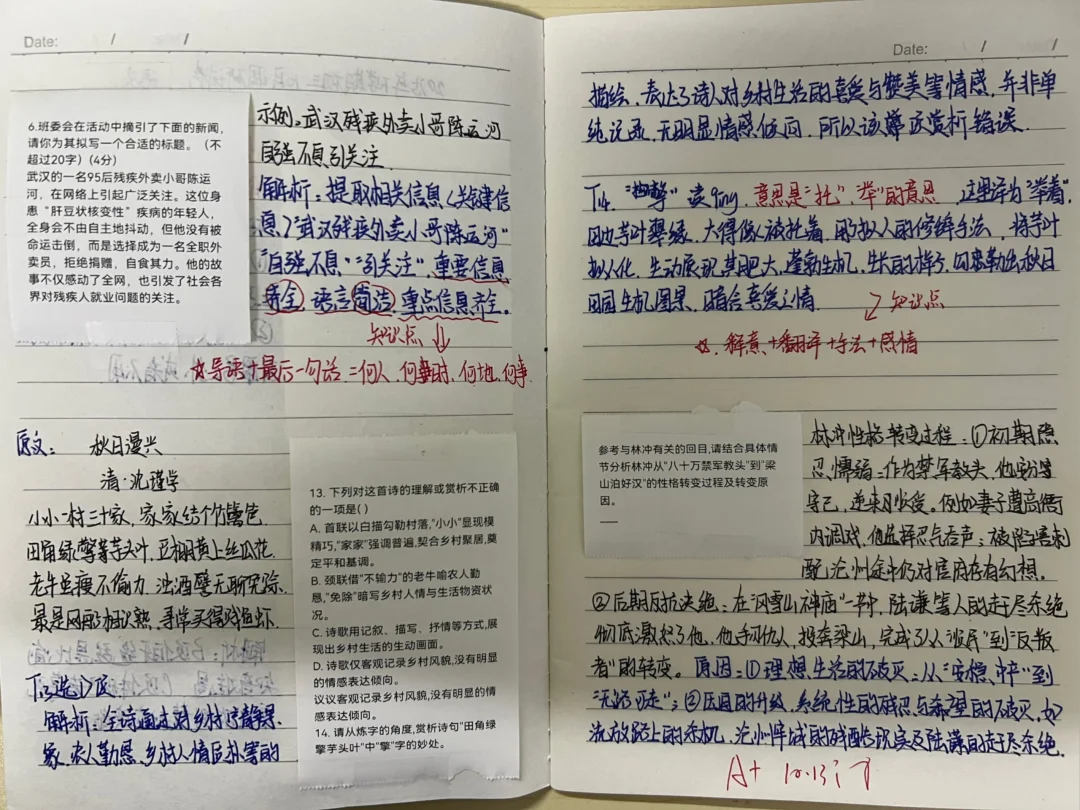 Date: / /
6.班委会在活动中摘引了下面的新闻,
请你为其拟写一个合适的标题。(不
超过20字)(4分)
武汉的一名95后残疾外卖小哥陈运
河,在网络上引起广泛关注。这位身
患“肝豆状核变性”疾病的年轻人,
全身会不由自主地抖动,但他没有被
命运击倒,而是选择成为一名全职外
卖员,拒绝捐赠,自食其力。他的故
事不仅感动了全网,也引发了社会各
界对残疾人就业问题的关注。
示例:武汉残疾外卖小哥陈运河
自强不息引关注
解析:提取相关信息(关键信
息)“武汉残疾外卖小哥陈运河”
“自强不息”“引关注”,重要信息
齐全,语言简洁,重点信息齐全。
知识点
☆导语+最后一句话=何人、何时、何地、何事
原文: 秋日漫兴
清·沈瑾学
小小一村三十家,家家结个竹篱笆
田角绿擎芋头叶,豆棚黄上丝瓜花
老牛虽瘦不偷力,浊酒
最是网船相识熟,寻常买得贱鱼虾
13. 下列对这首诗的理解或赏析不正确
的一项是( )
A. 首联以白描勾勒村落,“小小”显现模
精巧,“家家”强调普遍,契合乡村聚居,奠
定平和基调。
B. 颈联借“不输力”的老牛喻农人勤
恳,“免除”暗写乡村人情与生活物资状
况。
C. 诗歌用记叙、描写、抒情等方式,展
现出乡村生活的生动画面。
D. 诗歌仅客观记录乡村风貌,没有明显
的情感表达倾向。
议议客观记录乡村风貌,没有明显的情
感表达倾向。
14. 请从炼字的角度,赏析诗句“田角绿
擎芋头叶”中“擎”字的妙处。
T13选D项
解析:全诗通过对乡村宁静景
象、农人勤恳、乡村人情后朴实的
Date: / /
描绘,表达了诗人对乡村生活的喜爱与赞美等情感,并非单
纯记录,无明显情感倾向,所以该项赏析错误.
T14. “擎” 读qing,意思是“托”、“举”的意思,这里译为“举着”.
田边芋叶翠绿、大得像被托着,用拟人的修辞手法,将芋叶
拟人化,生动展现其肥大,蓬勃生机,生长的样子,勾勒出秋日
田园生机图景,暗含喜爱之情
知识点
☆.释意+翻译+手法+感情
参考与林冲有关的回目,请结合具体情
节分析林冲从“八十万禁军教头”到“梁
山泊好汉”的性格转变过程及转变原
因。
林冲性格转变过程:①初期隐
忍、懦弱:作为禁军教头,他安分
守己,逆来顺受。例如妻子遭高衙
内调戏,他选择忍气吞声;被陷害刺
配沧州途中仍对官府存有幻想。
②后期反抗决绝:在“风雪山神庙”一节中,陆谦等人的赶尽杀绝
彻底激怒了他,他手刃仇人,投奔梁山,完成了从“良民”到“反叛
者”的转变。原因:①理想生活的破灭:从“安稳”到
“无路可走”;②压迫的升级,系统性的残忍与希望的破灭,如
流放路上的杀机,沧州牢城的残酷现实及陆谦的赶尽杀绝.
A+ 10.13